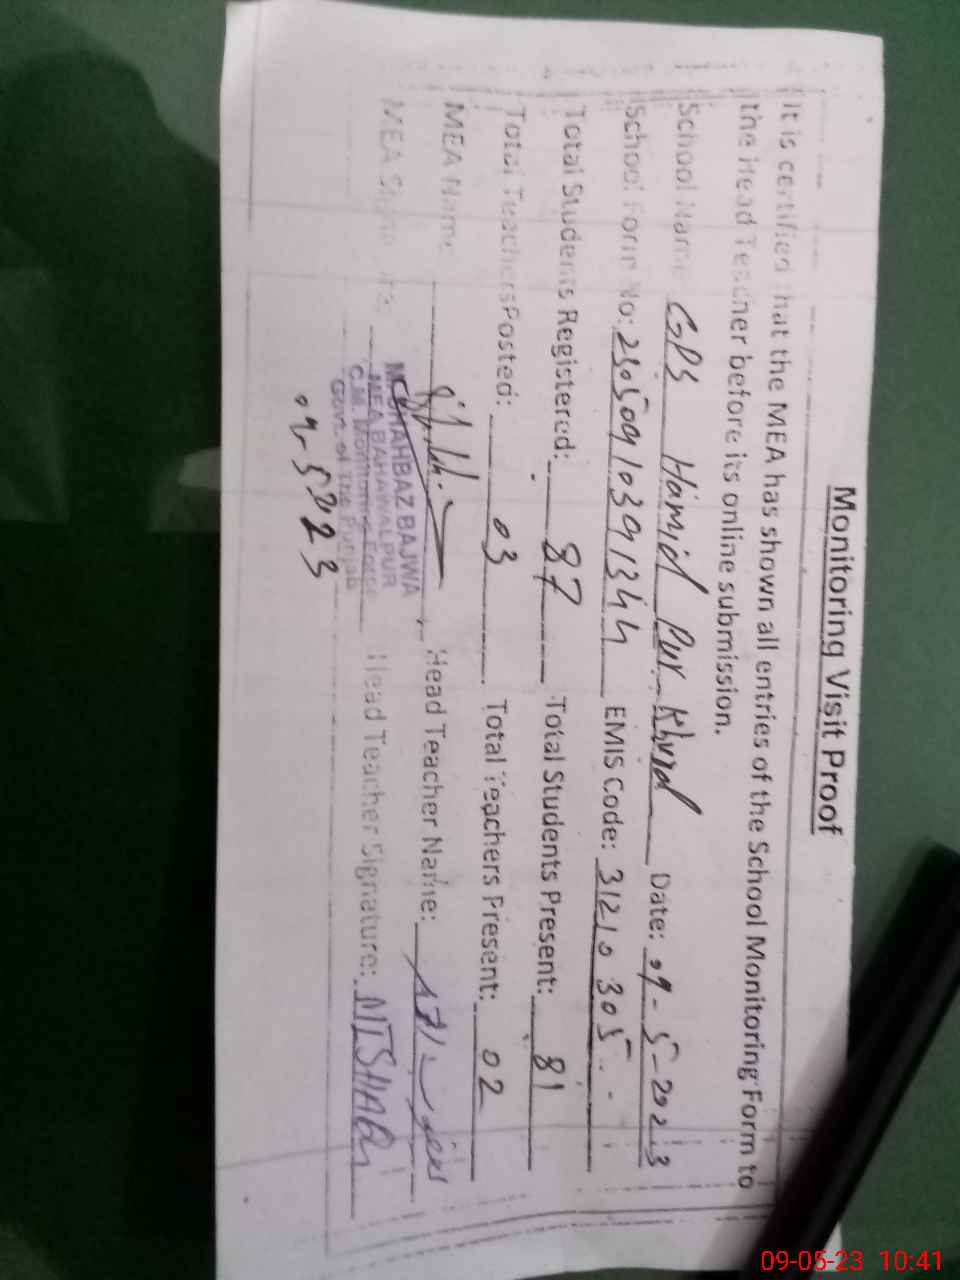 Monitoring Visit Proof
It is certified that the MEA has shown all entries of the School Monitoring Form to
the Head Teacher before its online submission.
School Name GPS Hamid Pur Khurd Date: 09-5-2023
School Form No: 23050910391344 EMIS Code: 31210305
Total Students Registered: 87 Total Students Present: 81
Total Teachers Posted: 03 Total Teachers Present: 02
MEA Name Head Teacher Name:
MEA Signature Head Teacher Signature: MISHAQ
M. SHAHBAZ BAJWA
MEA BAHAWALPUR
C.M. Monitoring Force
Govt. of The Punjab
09-5-2023
09-05-23 10:41